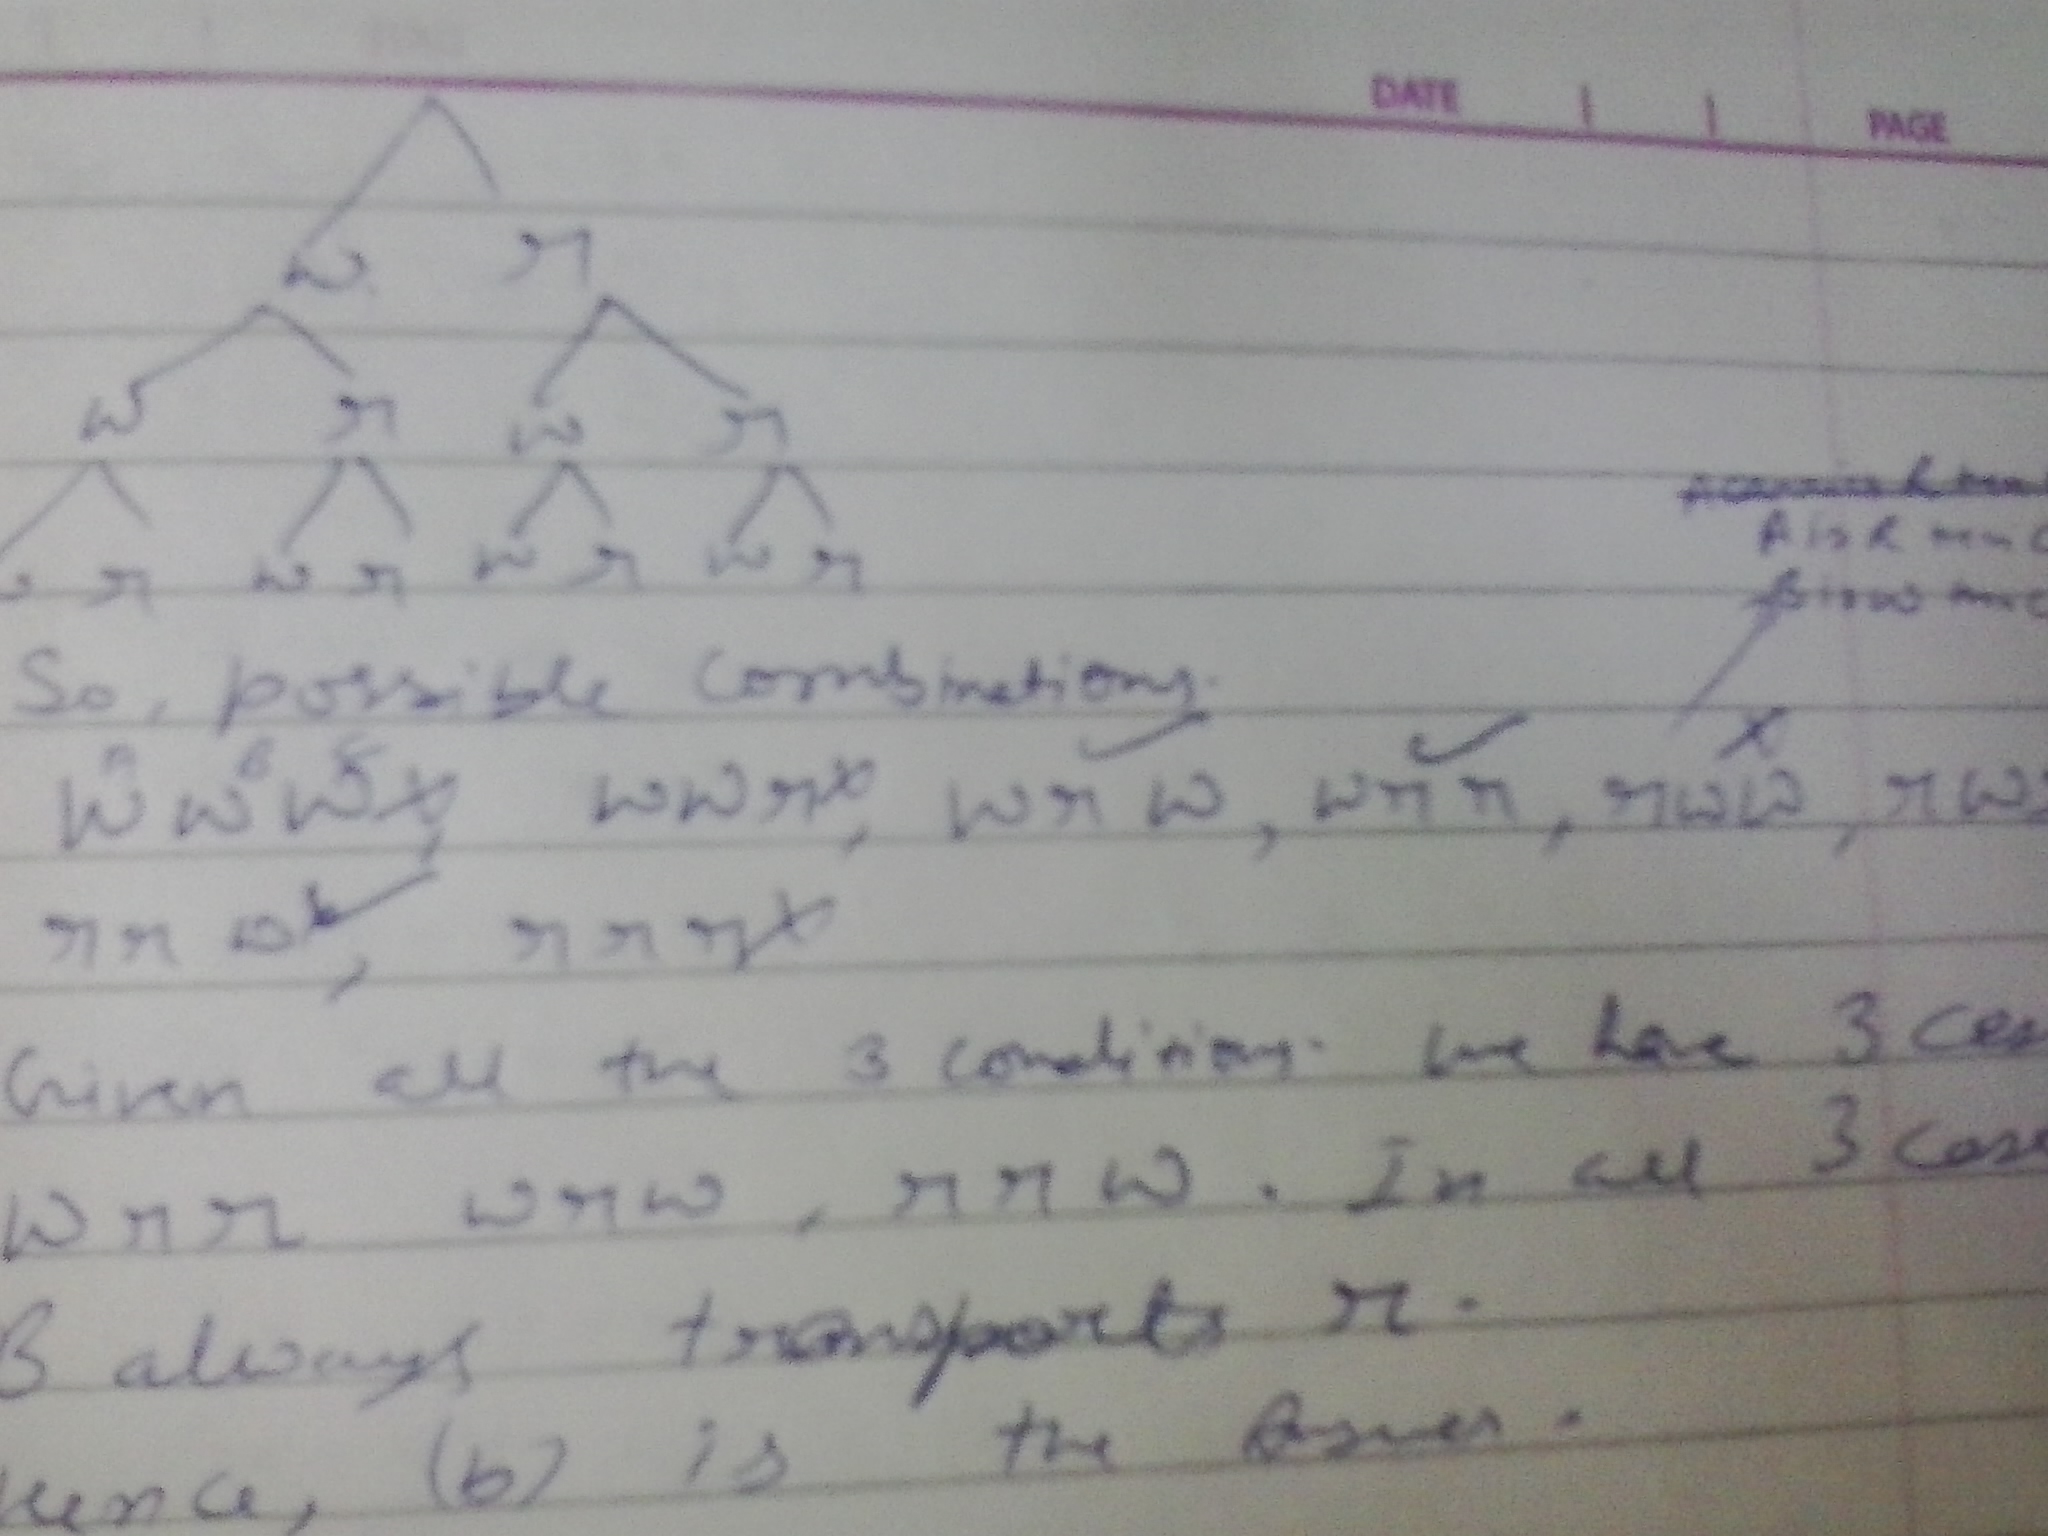 DATE | | PAGE
w r
w r w r
r w r w r w r
A is R
B is w
So, possible combinations.
A B C
w w w x, w w r x, w r w ✓, w r r ✓, r w w x, r w
r r w ✓, r r r x
Given all the 3 conditions. we have 3
w r r w r w, r r w. In all 3
B always transports r.
Hence, (b) is the Answer.